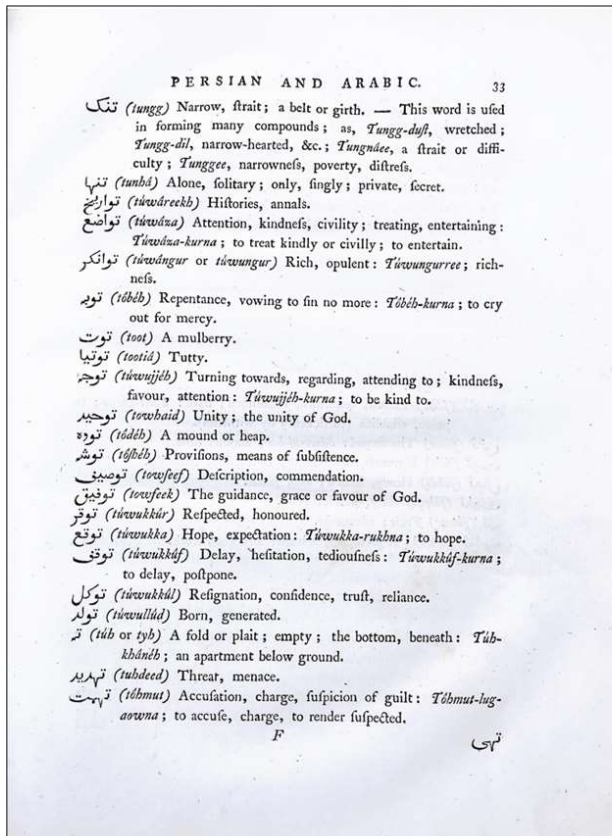 PERSIAN AND ARABIC. 33
تنک (tungg) Narrow, ſtrait; a belt or girth. — This word is uſed
in forming many compounds; as, Tungg-duſt, wretched;
Tungg-dil, narrow-hearted, &c.; Tungnáee, a ſtrait or diffi-
culty; Tunggee, narrowneſs, poverty, diſtreſs.
تنها (tunhá) Alone, ſolitary; only, ſingly; private, ſecret.
تواریخ (túwáreekh) Hiſtories, annals.
تواضع (túwáza) Attention, kindneſs, civility; treating, entertaining:
Túwáza-kurna; to treat kindly or civilly; to entertain.
توانکر (túwángur or túwungur) Rich, opulent: Túwungurree; rich-
neſs.
توبه (tóbéh) Repentance, vowing to ſin no more: Tóbéh-kurna; to cry
out for mercy.
توت (toot) A mulberry.
توتیا (tootiá) Tutty.
توجه (túwujjéh) Turning towards, regarding, attending to; kindneſs,
favour, attention: Túwujjéh-kurna; to be kind to.
توحید (towhaid) Unity; the unity of God.
توده (tódéh) A mound or heap.
توشه (tóſhéh) Proviſions, means of ſubſiſtence.
توصیف (towſeef) Deſcription, commendation.
توفیق (towfeek) The guidance, grace or favour of God.
توقر (túwukkúr) Reſpected, honoured.
توقع (túwukka) Hope, expectation: Túwukka-rukhna; to hope.
توقف (túwukkúf) Delay, heſitation, tediouſneſs: Túwukkúf-kurna;
to delay, poſtpone.
توکل (túwukkúl) Reſignation, confidence, truſt, reliance.
تولد (túwullúd) Born, generated.
ته (túh or tyh) A fold or plait; empty; the bottom, beneath: Túh-
khánéh; an apartment below ground.
تهدید (tuhdeed) Threat, menace.
تهمت (tóhmut) Accuſation, charge, ſuſpicion of guilt: Tóhmut-lug-
aowna; to accuſe, charge, to render ſuſpected.
F تهی